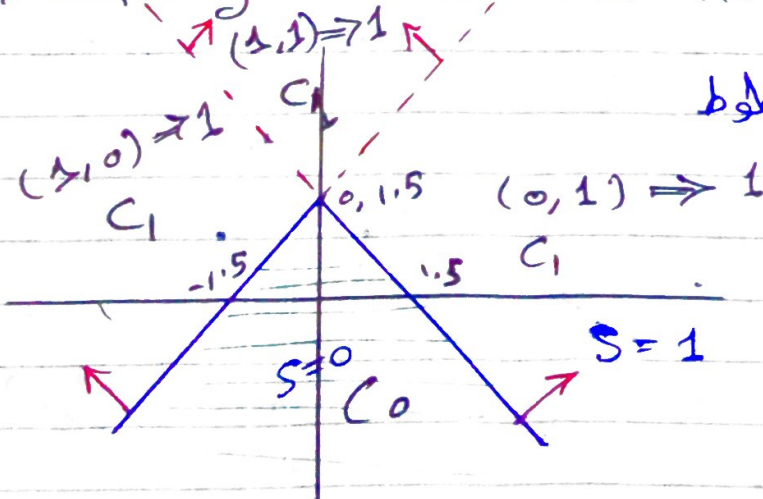 (1,1) ⇒ 1
C1
(1,0) ⇒ 1
C1
0, 1.5
(0,1) ⇒ 1
C1
-1.5
1.5
S=0
C0
S = 1